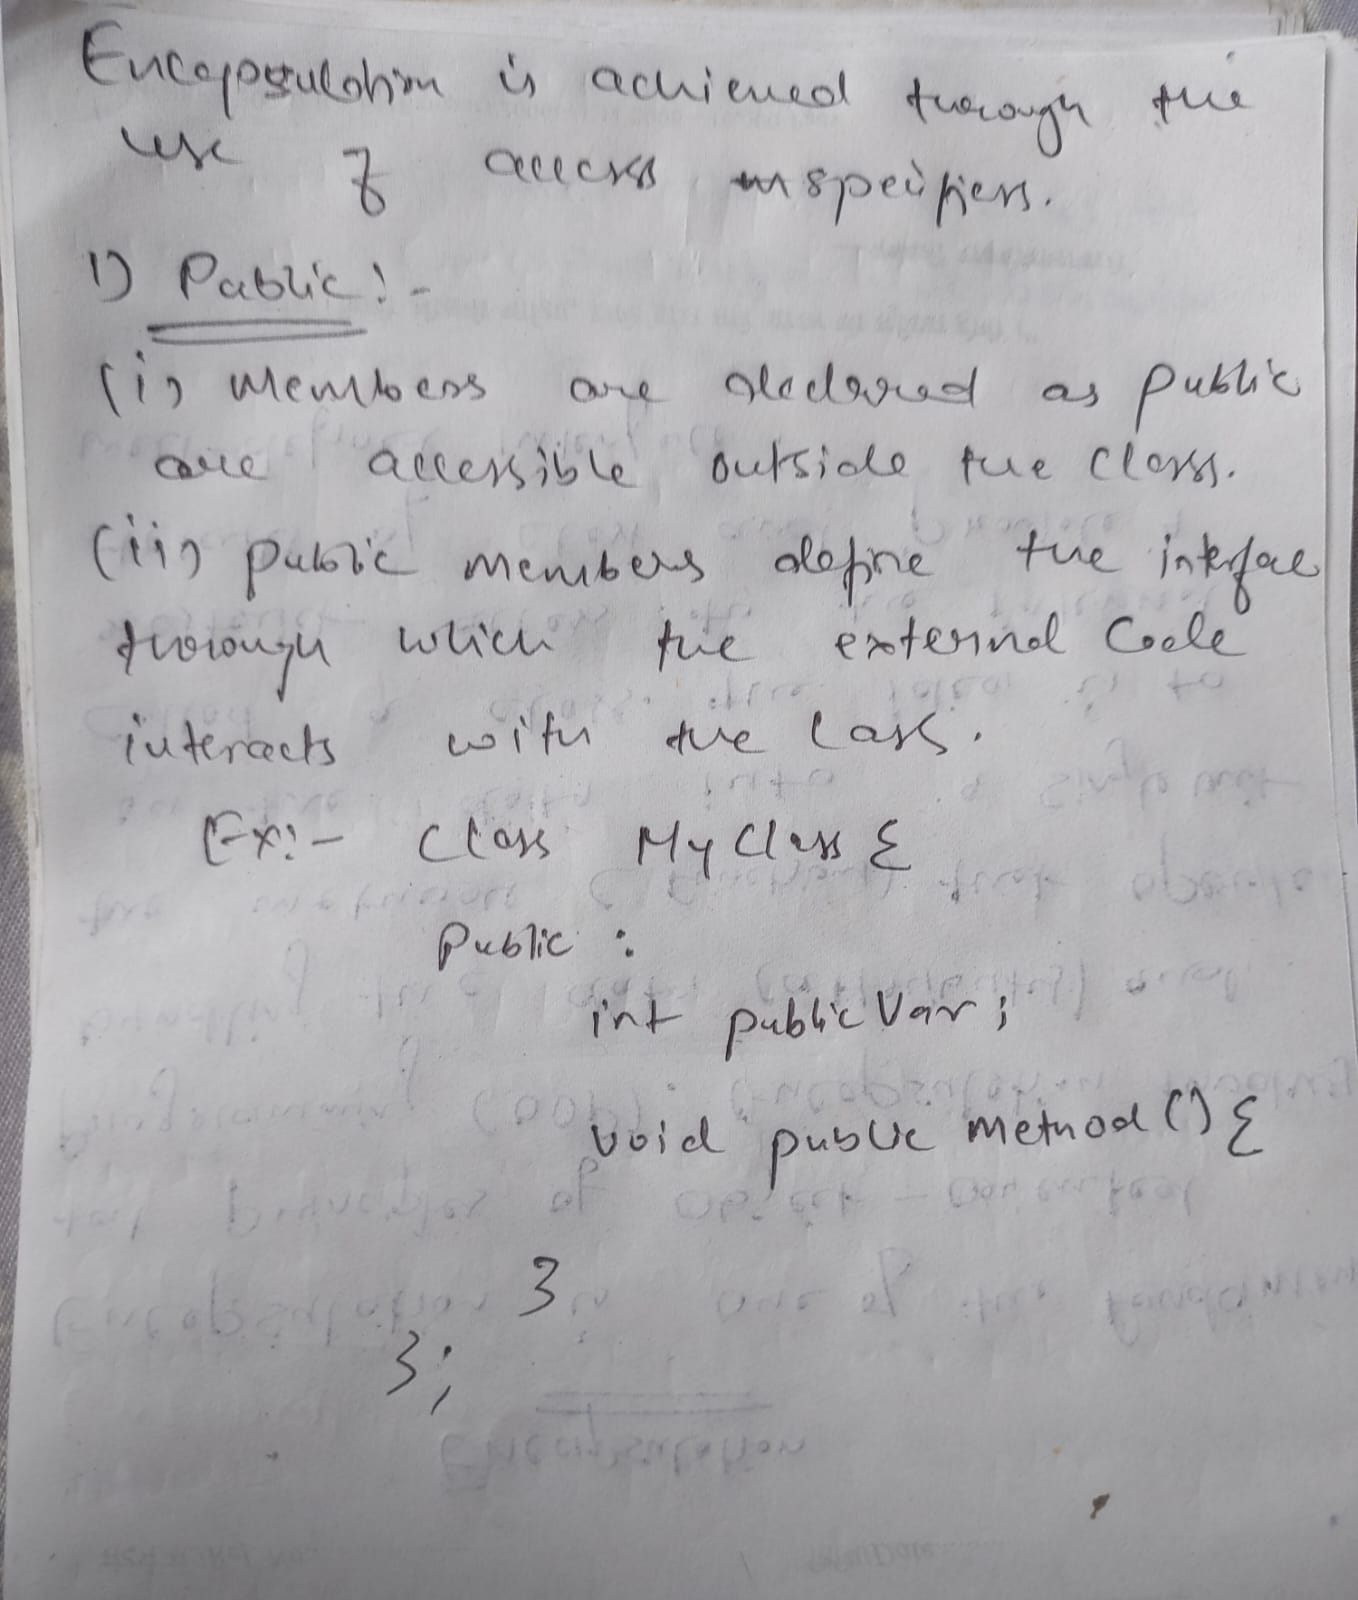 Encapsulation is achieved through the
use of access specifiers.
1) Public :-
(i) Members are declared as public
are accessible outside the class.
(ii) public members define the interface
through which the external Code
interacts with the lass.
Ex:- Class My Class {
Public :
int public Var ;
void public method () {
}
};